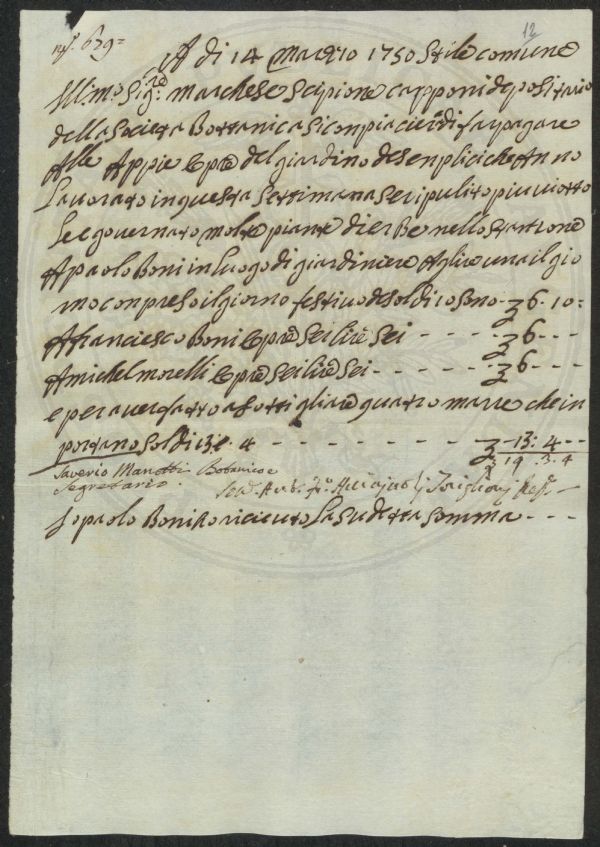 12
A di 14 Marzo 1750 Stile comune
Illmo Sigre Marchese Scipione capponi depositario
della Società Bottanica si conpiacierà di far pagare
Alle Appie Opre del giardino de senplici che Anno
Lavorato in questa Settimana Sei ripulito più viotto
le e governato molte piante di erBe nello Stantzone
A paolo Boni in luogo di giardiniere A glire una il gio
rno conpreso il giorno festivo de soldi 10 sono - 36 . 10 :
A franciesco Boni Opre Sei lire Sei - - - - - 36 - - -
A michel morelli Opre Sei lire Sei - - - - - - 36 - - -
e per aver fatto asottigliare quatro marre che in
portano Soldi 13e 4 - - - - - - - - - 3 - 13 : 4 - -
Saverio Manetti Botanico e 3 19 . 3 . 4
Segretario.
Io paolo Boni Ho riceuto La Sudetta Somma - - -